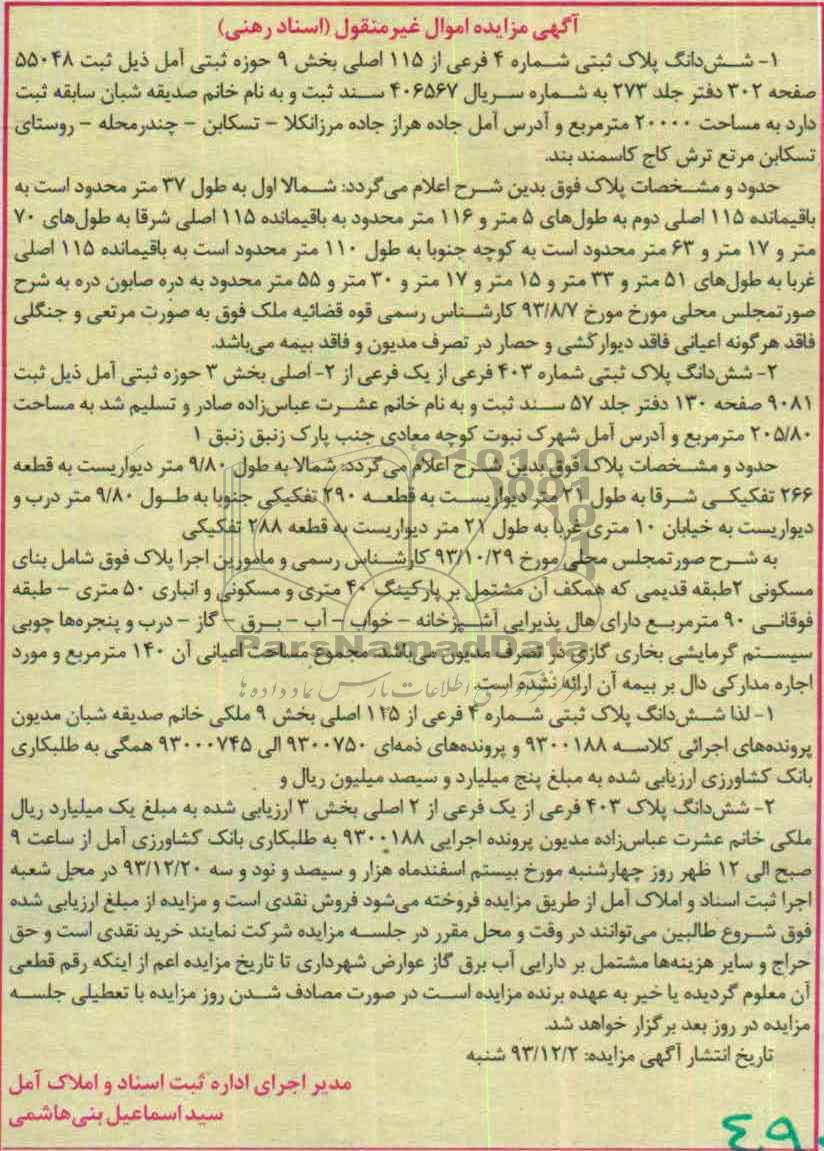 آگهی مزایده اموال غیرمنقول (اسناد رهنی)
۱- شش‌دانگ پلاک ثبتی شماره ۴ فرعی از ۱۱۵ اصلی بخش ۹ حوزه ثبتی آمل ذیل ثبت ۵۵۰۴۸
صفحه ۳۰۲ دفتر جلد ۲۷۳ به شماره سریال ۴۰۶۵۶۷ سند ثبت و به نام خانم صدیقه شبان سابقه ثبت
دارد به مساحت ۲۰۰۰۰ مترمربع و آدرس آمل جاده هراز جاده مرزانکلا - تسکابن - چندرمحله - روستای
تسکابن مرتع ترش کاج کاسمند بند.
حدود و مشخصات پلاک فوق بدین شرح اعلام می‌گردد: شمالا اول به طول ۳۷ متر محدود است به
باقیمانده ۱۱۵ اصلی دوم به طول‌های ۵ متر و ۱۱۶ متر محدود به باقیمانده ۱۱۵ اصلی شرقا به طول‌های ۷۰
متر و ۱۷ متر و ۶۳ متر محدود است به کوچه جنوبا به طول ۱۱۰ متر محدود است به باقیمانده ۱۱۵ اصلی
غربا به طول‌های ۵۱ متر و ۳۳ متر و ۱۵ متر و ۱۷ متر و ۳۰ متر و ۵۵ متر محدود به دره صابون دره به شرح
صورتمجلس محلی مورخ مورخ ۹۳/۸/۷ کارشناس رسمی قوه قضائیه ملک فوق به صورت مرتعی و جنگلی
فاقد هرگونه اعیانی فاقد دیوارکشی و حصار در تصرف مدیون و فاقد بیمه می‌باشد.
۲- شش‌دانگ پلاک ثبتی شماره ۴۰۳ فرعی از یک فرعی از ۲- اصلی بخش ۳ حوزه ثبتی آمل ذیل ثبت
۹۰۸۱ صفحه ۱۳۰ دفتر جلد ۵۷ سند ثبت و به نام خانم عشرت عباس‌زاده صادر و تسلیم شد به مساحت
۲۰۵/۸۰ مترمربع و آدرس آمل شهرک نبوت کوچه معادی جنب پارک زنبق زنبق ۱
حدود و مشخصات پلاک فوق بدین شرح اعلام می‌گردد: شمالا به طول ۹/۸۰ متر دیواریست به قطعه
۲۶۶ تفکیکی شرقا به طول ۲۱ متر دیواریست به قطعه ۲۹۰ تفکیکی جنوبا به طول ۹/۸۰ متر درب و
دیواریست به خیابان ۱۰ متری غربا به طول ۲۱ متر دیواریست به قطعه ۲۸۸ تفکیکی
به شرح صورتمجلس محلی مورخ ۹۳/۱۰/۲۹ کارشناس رسمی و مامورین اجرا پلاک فوق شامل بنای
مسکونی ۲طبقه قدیمی که همکف آن مشتمل بر پارکینگ ۴۰ متری و مسکونی و انباری ۵۰ متری - طبقه
فوقانی ۹۰ مترمربع دارای هال پذیرایی آشپزخانه - خواب - آب - برق - گاز - درب و پنجره‌ها چوبی
سیستم گرمایشی بخاری گازی در تصرف مدیون می‌باشد. مجموع مساحت اعیانی آن ۱۴۰ مترمربع و مورد
اجاره مدارکی دال بر بیمه آن ارائه نشده است.
۱- لذا شش‌دانگ پلاک ثبتی شماره ۴ فرعی از ۱۲۵ اصلی بخش ۹ ملکی خانم صدیقه شبان مدیون
پرونده‌های اجرائی کلاسه ۹۳۰۰۱۸۸ و پرونده‌های ذمه‌ای ۹۳۰۰۷۵۰ الی ۹۳۰۰۰۷۴۵ همگی به طلبکاری
بانک کشاورزی ارزیابی شده به مبلغ پنج میلیارد و سیصد میلیون ریال و
۲- شش‌دانگ پلاک ۴۰۳ فرعی از یک فرعی از ۲ اصلی بخش ۳ ارزیابی شده به مبلغ یک میلیارد ریال
ملکی خانم عشرت عباس‌زاده مدیون پرونده اجرایی ۹۳۰۰۱۸۸ به طلبکاری بانک کشاورزی آمل از ساعت ۹
صبح الی ۱۲ ظهر روز چهارشنبه مورخ بیستم اسفندماه هزار و سیصد و نود و سه ۹۳/۱۲/۲۰ در محل شعبه
اجرا ثبت اسناد و املاک آمل از طریق مزایده فروخته می‌شود فروش نقدی است و مزایده از مبلغ ارزیابی شده
فوق شروع طالبین می‌توانند در وقت و محل مقرر در جلسه مزایده شرکت نمایند خرید نقدی است و حق
حراج و سایر هزینه‌ها مشتمل بر دارایی آب برق گاز عوارض شهرداری تا تاریخ مزایده اعم از اینکه رقم قطعی
آن معلوم گردیده یا خیر به عهده برنده مزایده است در صورت مصادف شدن روز مزایده با تعطیلی جلسه
مزایده در روز بعد برگزار خواهد شد.
تاریخ انتشار آگهی مزایده: ۹۳/۱۲/۲ شنبه
مدیر اجرای اداره ثبت اسناد و املاک آمل
سید اسماعیل بنی‌هاشمی
ParsNamadData